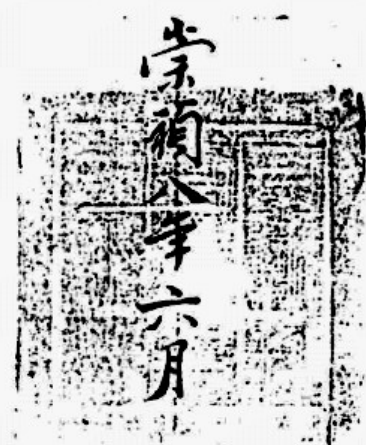 崇禎八年六月